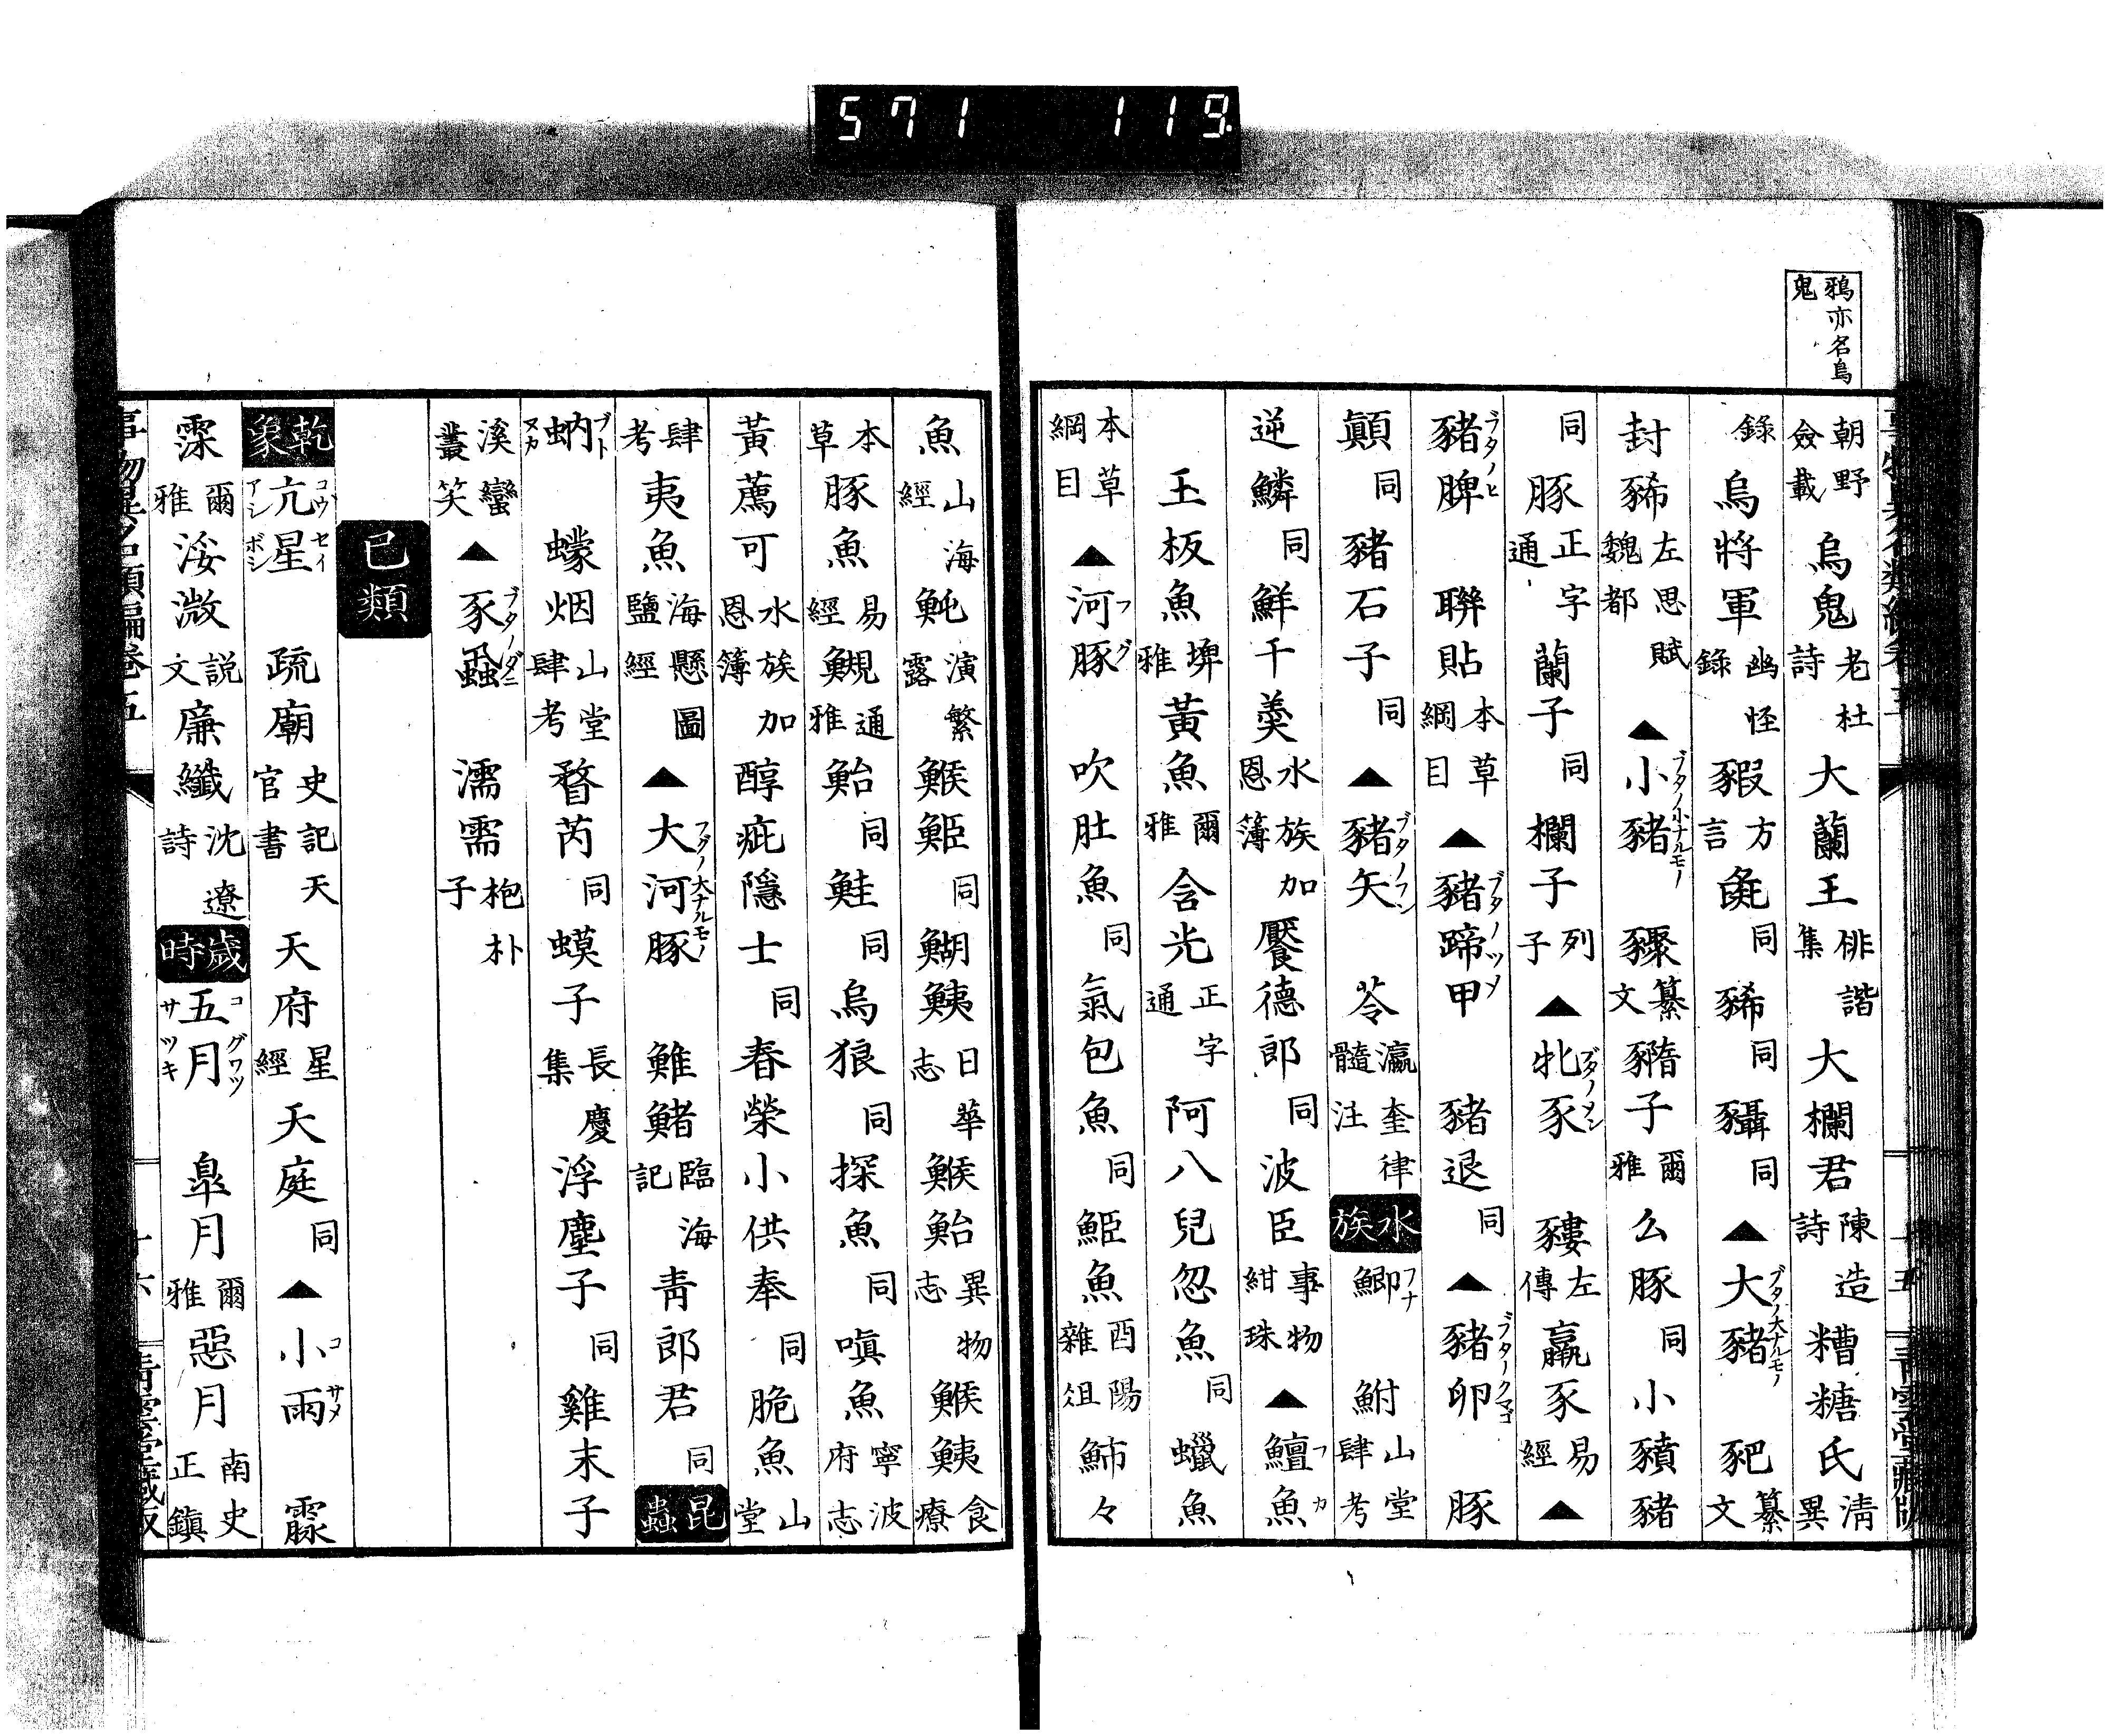 571 119
鴉亦名烏
鬼
朝野僉載烏鬼老杜詩大蘭王俳諧集大欄君陳造詩糟糖氏淸異
錄烏將軍幽怪錄豭方言豘同豨同豱同▲大豬ブタノ大ナルモノ豝纂文
封豨左思魏都賦▲小豬ブタノ小ナルモノ䝒纂文豬子爾雅么豚同小豶豬
同豚正字通蘭子同欄子列子▲牝豕ブタノメン豵左傳羸豕易經▲
豬脾ブタノヒ聯貼本草綱目▲豬蹄甲ブタノツメ豬退同▲豬卵ブタノタマゴ豚
顚同豬石子同▲豬矢ブタノフン苓瀛奎律髓注水族鯽フナ鮒山堂肆考
逆鱗同鮮于羹水族加恩簿饜德郎同波臣事物紺珠▲鱣魚フカ
玉板魚埤雅黃魚爾雅含光正字通阿八兒忽魚同蠟魚
本草綱目▲河豚フグ吹肚魚同氣包魚同鮔魚酉陽雜俎魳々
魚山海經魨演繁露鯸鮔同鰗鮧日華志鯸鮐異物志鯸鮧食療
本草豚魚易經鯢通雅鮐同鮭同烏狼同探魚同嗔魚寧波府志
黃薦可水族加恩簿醇疵隱士同春榮小供奉同脆魚山堂
肆考夷魚海鹽縣圖經▲大河豚フグノ大ナルモノ鯡䱇臨海記靑郎君同昆蟲
蚋ブトヌカ蠓烟山堂肆考瞀芮同蟆子長慶集浮塵子同雞末子
溪蠻叢笑▲豕蝨ブタノダニ濡需抱朴子
巳類
乾象亢星コウセイアシボシ疏廟史記天官書天府星經天庭同▲小雨コサメ霢
霂爾雅浽溦說文廉纖沈遼詩歲時五月ゴグワツサツキ皐月爾雅惡月南史正鎭
事物異名類編卷五
十六
靑雲堂藏版